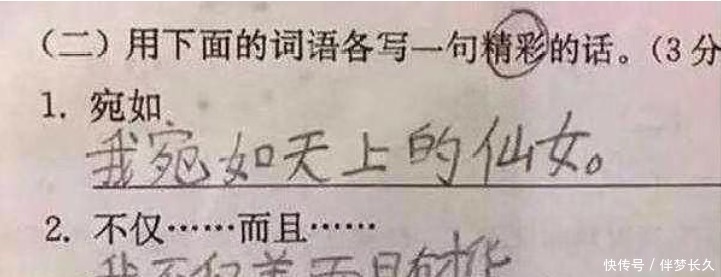 （二）用下面的词语各写一句精彩的话。（3分
1. 宛如
我宛如天上的仙女。
2. 不仅……而且……
我不仅美而且有才华
快传号 / 伴梦长久